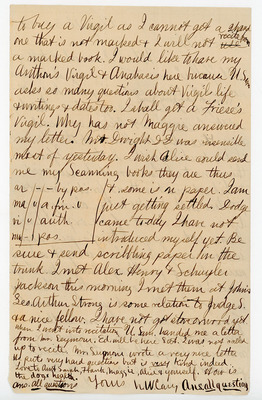 to buy a Virgil as I cannot get a
one that is not marked & I will not recite in
a marked book. I would like to have my
Arthur's Virgil & Anabasis here because U. Sam
asks so many questions about Virgils life
& writings & dates too. I shall get a Friese's
Virgil. Why has not Maggie answered
my letter. Mr Dwight I. was
most of yesterday. I wish Alice would send
me my scanning books they are thus,
ar - - by pos. & some is n paper. I am
ma u a. fin. v just getting settled. Dodge
ni u auth. came today I have not
mu - pos. introduced myself yet. Be
sure & send scribbling paper in the
trunk. I met Alex Henry & Schuyler
Jackson this morning. I met them at John's
Geo. Arthur Strong is some relation to Judge S.
& a nice fellow. I have not got stove wood yet
when I next into recitation U. Sam. handed me a letter
from Mrs. Seymour. Ed. will be here Sat. I was not called
up to recite. Mrs Seymour wrote a very nice letter
U. puts very hard questions but is very kind indeed
Love to Aunt Sarah, Hank, Maggie, Alice & yourself. How is
the dogs health
ans. all questions Yours W W Cary Ans all questions